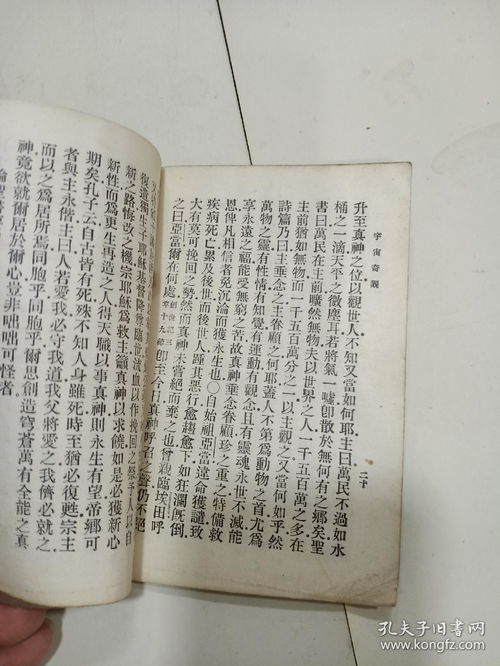 宇宙奇觀
二十
升至真神之位以觀世人不知又當如何耶主曰萬民不過如水
桶之一滴天平之微塵耳若將氣一噓卽散於無何有之鄉矣聖
書曰萬民在主前曠然無物夫以世界之人一千五百萬萬之多在
主前猶如無物而一千五百萬分之一以主觀之又當何如乎然
詩篇乃曰主垂念之主眷顧之何耶蓋人不第爲動物之首尤爲
萬物之靈有性情有知覺有運動有觀念且有靈魂永世不滅能
享永遠之福能受無窮之苦故真神垂念眷顧珍之重之特備救
恩俾凡相信者免沉淪而獲永生也○自始祖亞當違命獲譴致
疾病死亡累及後世而後世人踵其惡行愈趨愈下如狂瀾旣倒
大有莫可挽回之勢然而真神未嘗絕而棄之也曾親臨埃田呼
之曰亞當爾在何處創世記三章十九節卽至今日真神呼召之聲仍不絕
復遣獨生子耶穌基督降臨世流血以作挽回之祭予人以自
新之路悔改之機宗耶穌爲救主籲真神以求饒如是必獲新心
新性而爲更生再造之人得天職以事真神則永生有望帝鄉可
期矣孔子云自古皆有死殊不知人身雖死時至猶必復甦宗主
者與主永偕主曰人若愛我必守我道我父將愛之我儕必就之
而以之爲居所焉同胞乎同胞乎爾思創造穹蒼萬有全能之真
神竟欲就爾居於爾心豈非咄咄可怪者
孔夫子旧书网
www.kongfz.com